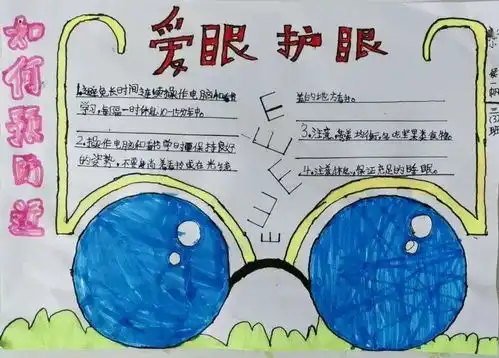 爱眼护眼
如何预防近
1.避免长时间连续操作电脑和看书
学习,每隔一时休息10-15分钟。
2.操作电脑和看书时要保持良好
的姿势,不要身向着
光
的地方看书。
3.注意
均衡,
吃
类食物。
4.注意休息,保证充足的睡眠。
E
E
E
E
E
班